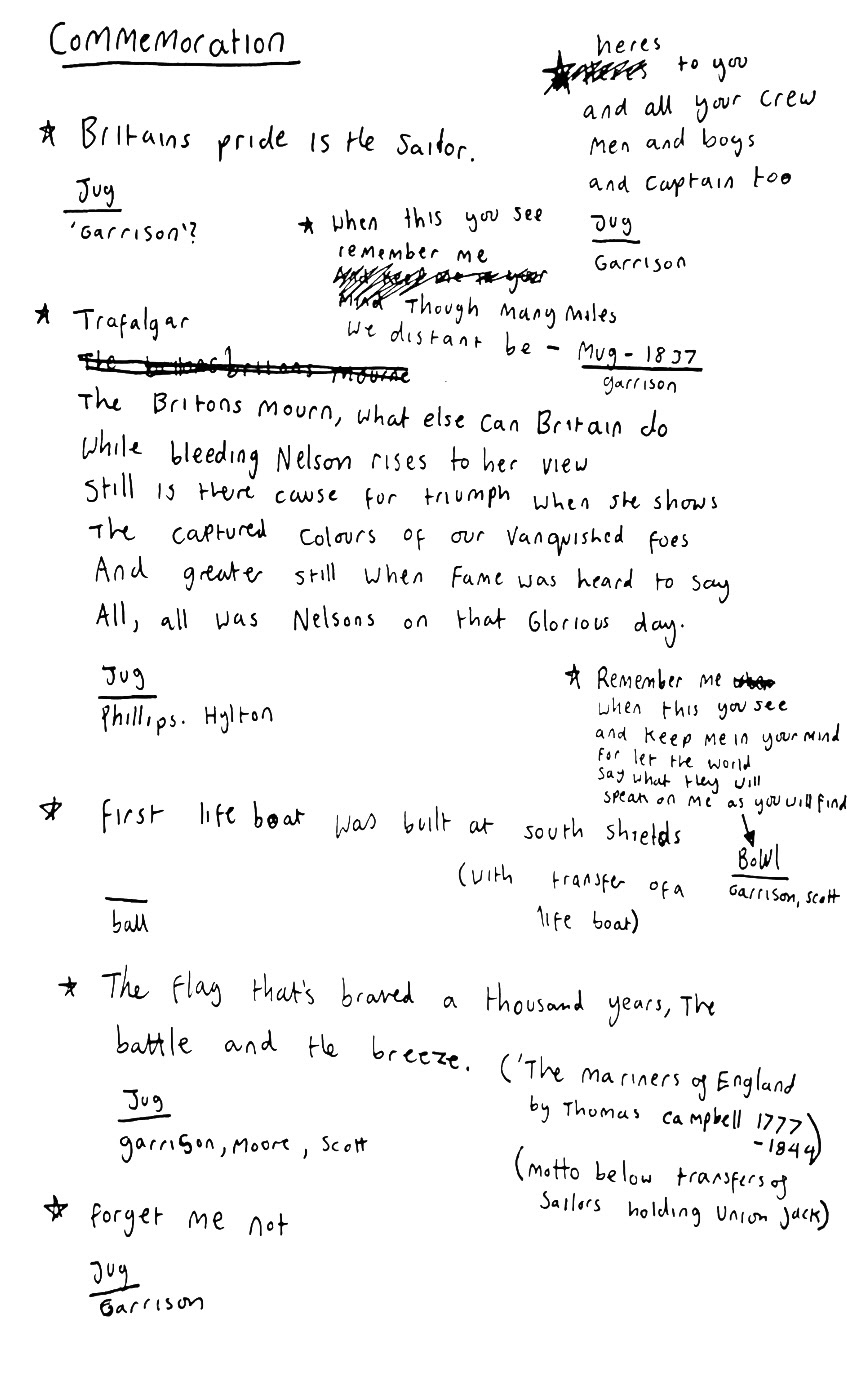 Commemoration
heres
to you
and all your crew
Men and boys
and Captain too
Jug
Garrison
Britains pride is the Sailor.
Jug
'Garrison'?
When this you see
remember me
And keep me in your
Mind Though Many Miles
We distant be - Mug - 1837
garrison
Trafalgar
The Britons mourn, what else can Britain do
While bleeding Nelson rises to her view
Still is there cause for triumph when she shows
The captured Colours of our Vanquished foes
And greater still when Fame was heard to say
All, all was Nelsons on that Glorious day.
Jug
Phillips. Hylton
Remember me
when this you see
and keep me in your mind
For let the world
Say what they will
speak on me as you will find
Bowl
Garrison, Scott
First life boat was built at south shields
(with transfer of a
life boat)
ball
The Flag that's braved a thousand years, The
battle and the breeze.
('The mariners of England
by Thomas Campbell 1777
-1844)
(motto below transfers of
Sailors holding Union Jack)
Jug
garrison, Moore, Scott
Forget me not
Jug
Garrison